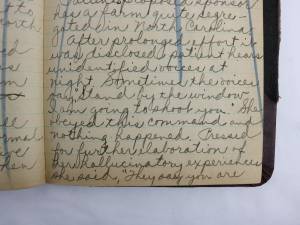 to
orth
Patient's proposed sponsor
has a farm quite segre-
gated in North Carolina
After prolonged effort it
was disclosed patient hears
unidentified voices at
night. Sometimes the voices
say "stand by the window,
I am going to shoot you". She
obeyed this command and
nothing happened. Pressed
for further elaboration of
her hallucinatory experiences
she said, "They say you are